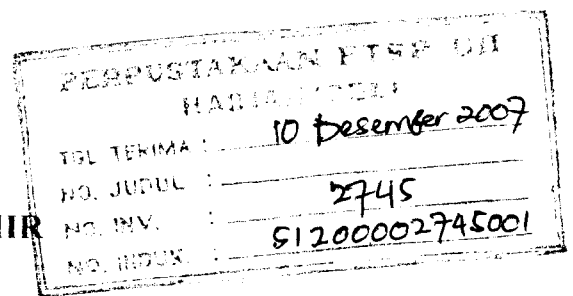 PERPUSTAKAAN FTSP UII
HADIAH/BELI
TGL TERIMA : 10 Desember 2007
NO. JUDUL :
NO. INV. : 2745
NO. INDUK. : 51200002745001
HIR